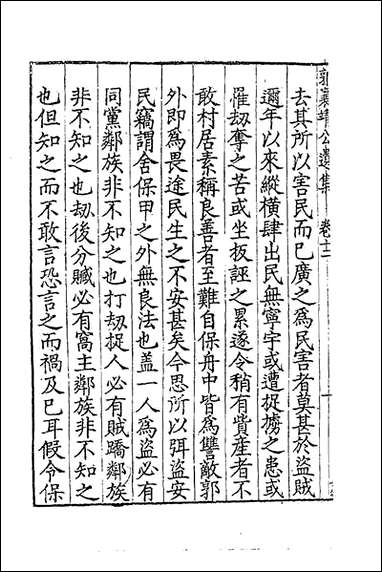 郭襄靖公遺集 卷十二
去其所以害民而已廣之為民害者莫甚於盜賊
邇年以來縱橫肆出民無寧宇或遭捉擄之患或
罹刼奪之苦或坐扳誣之累遂令稍有貲產者不
敢村居素稱良善者至難自保舟中皆為讐敵郭
外即為畏途民生之不安甚矣今思所以弭盜安
民竊謂舍保甲之外無良法也蓋一人為盜必有
同黨鄰族非不知之也打刼捉人必有賊蹻鄰族
非不知之也刼後分贓必有窩主鄰族非不知之
也但知之而不敢言恐言之而禍及已耳假令保